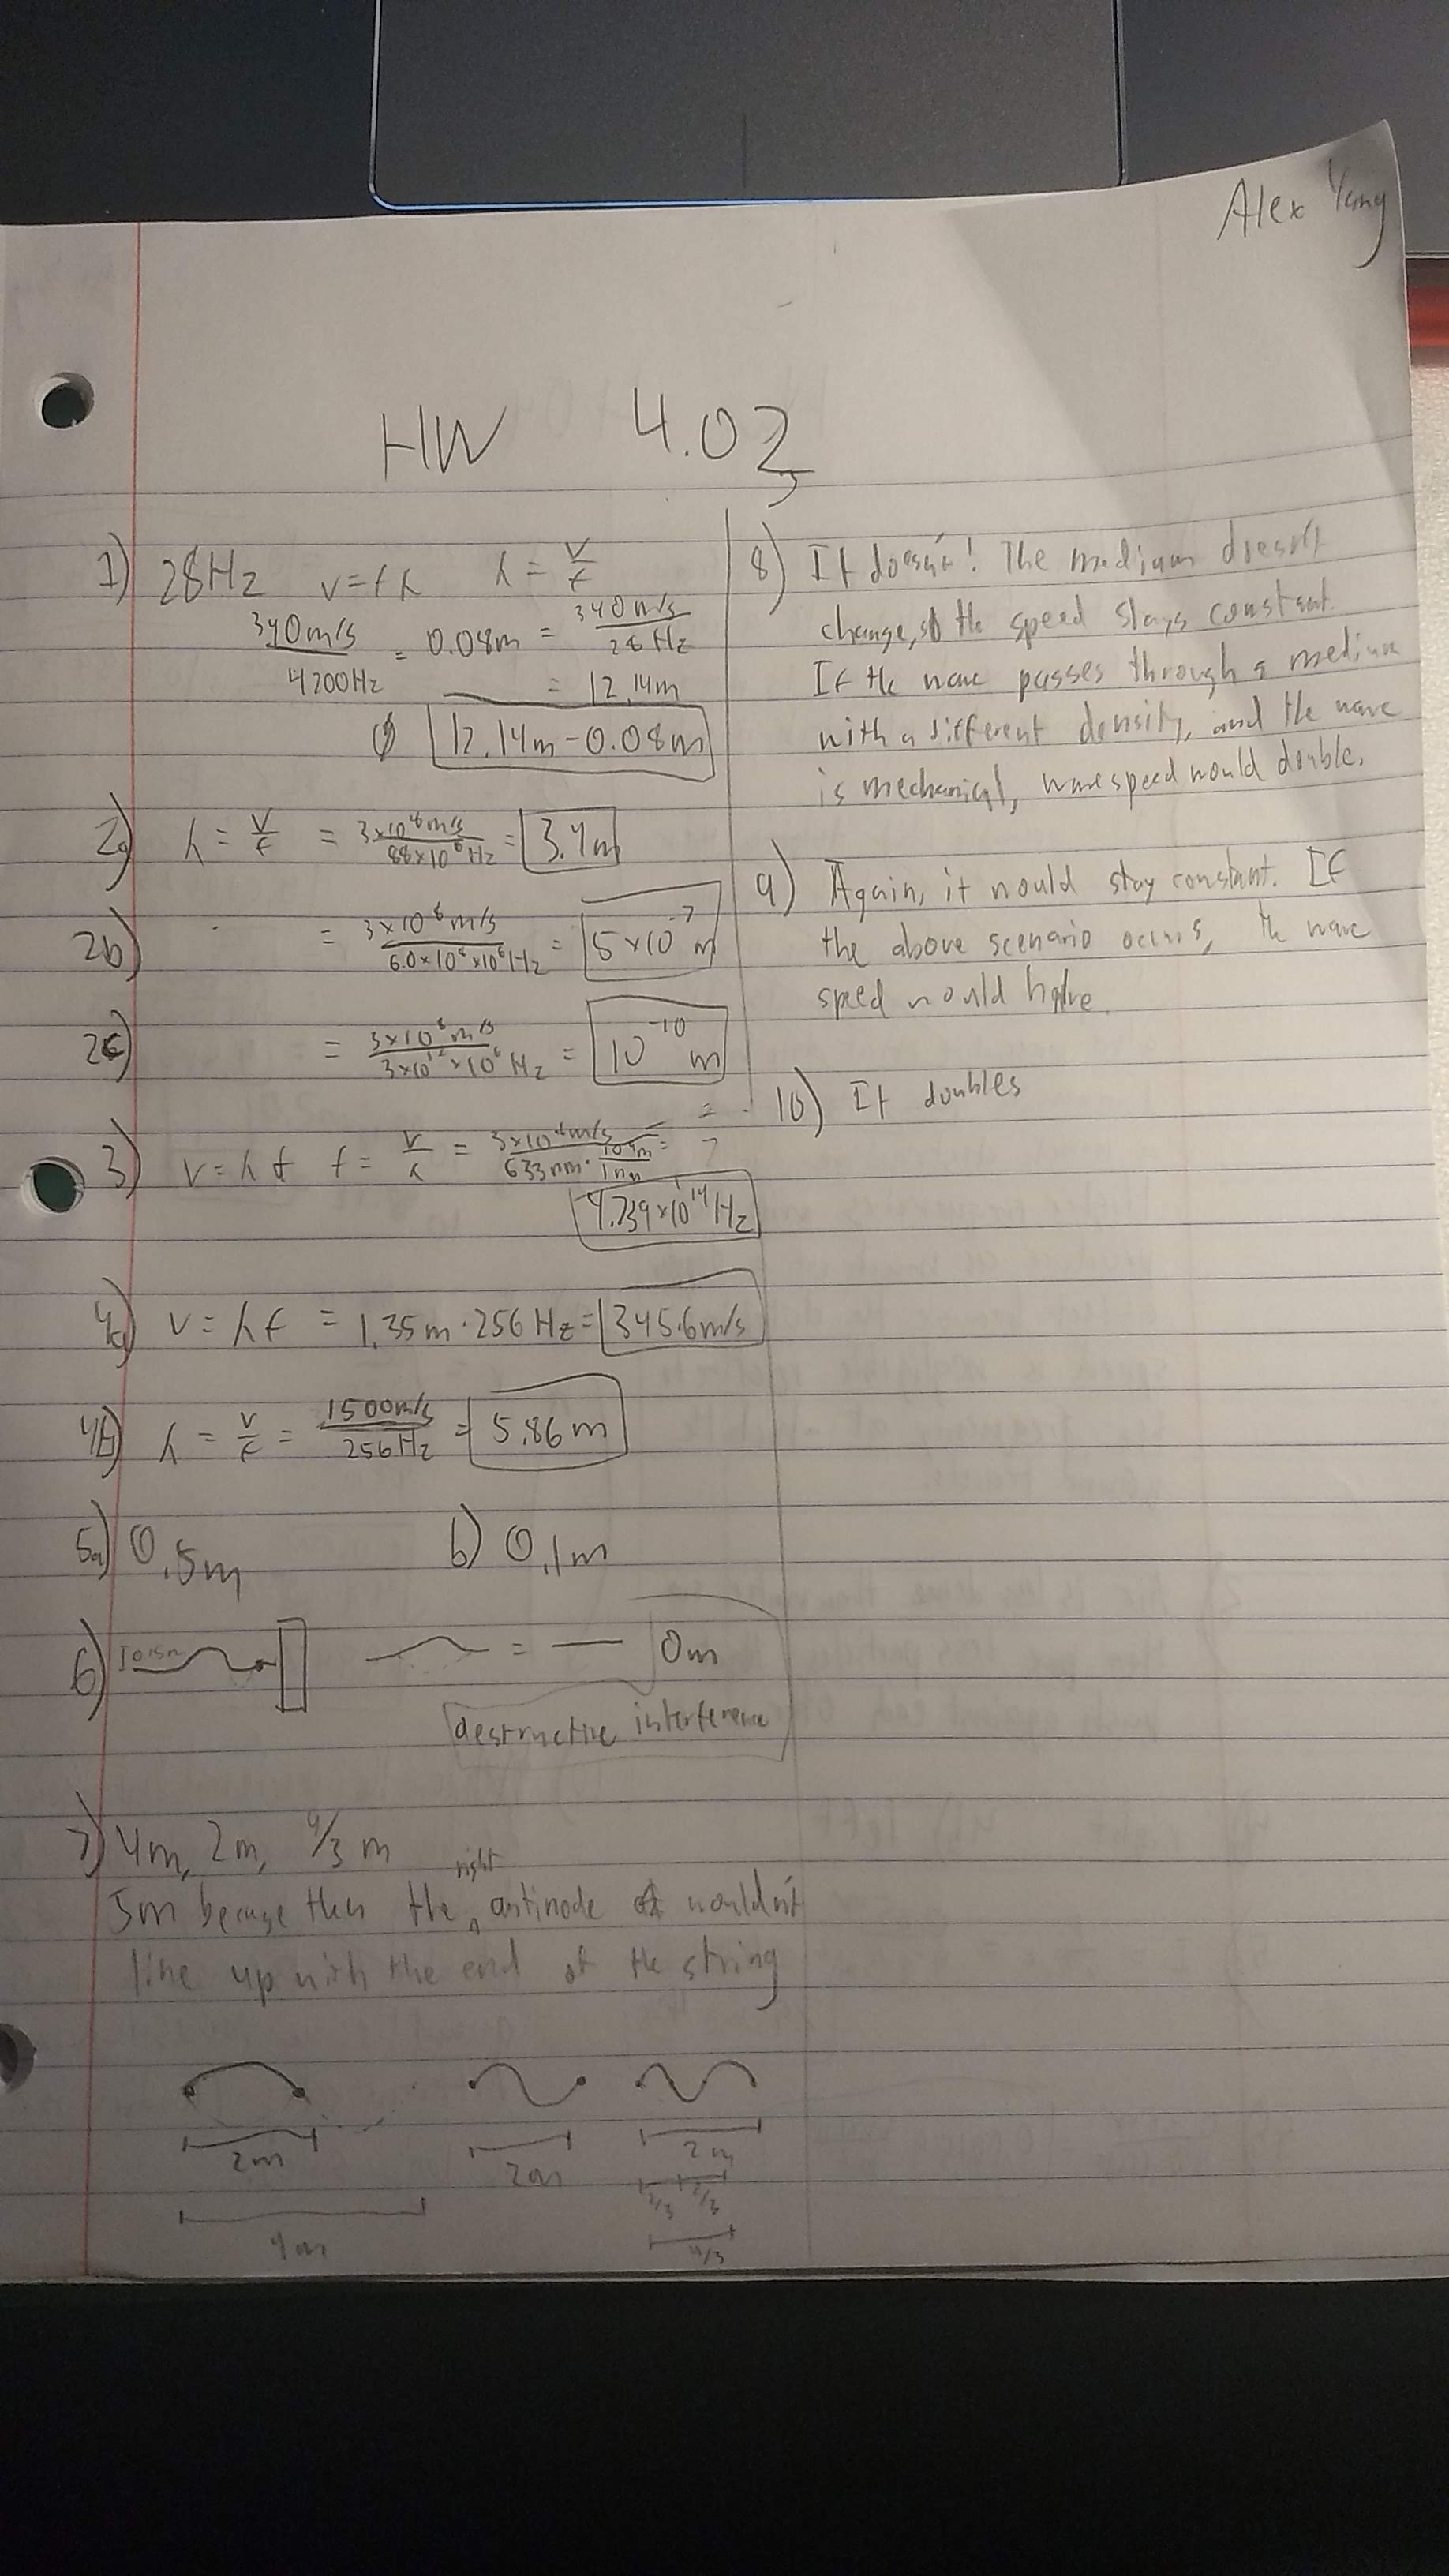 Alex Yang
HW 4.02
1) 28Hz v=fλ λ = v/f
340m/s / 4200Hz = 0.08m = 340m/s / 28 Hz
= 12.14m
12.14m-0.08m
2a) λ = v/f = 3×10⁸m/s / 88×10⁶Hz = 3.4m
2b) = 3×10⁸m/s / 6.0×10⁸×10⁶Hz = 5×10⁻⁷m
2c) = 3×10⁸m/s / 3×10¹²×10⁶Hz = 10⁻¹⁰m
3) v=λf f = v/λ = 3×10⁸m/s / 633nm · 10⁻⁹m / 1nm =
4.739×10¹⁴Hz
4a) v = λf = 1.35m·256Hz = 345.6m/s
4b) λ = v/f = 1500m/s / 256Hz = 5.86m
5a) 0.5m b) 0.1m
6) 0.15m = — 0m
destructive interference
7) 4m, 2m, 4/3 m
right
5m because then the ^ antinode wouldn't
line up with the end of the string
2m 2m 2m
2/3 2/3
4m 4/3
8) It doesn't! The medium doesn't
change, so the speed stays constant.
If the wave passes through a medium
with a different density, and the wave
is mechanical, wavespeed would double.
9) Again, it would stay constant. If
the above scenario occurs, the wave
speed would halve.
10) It doubles